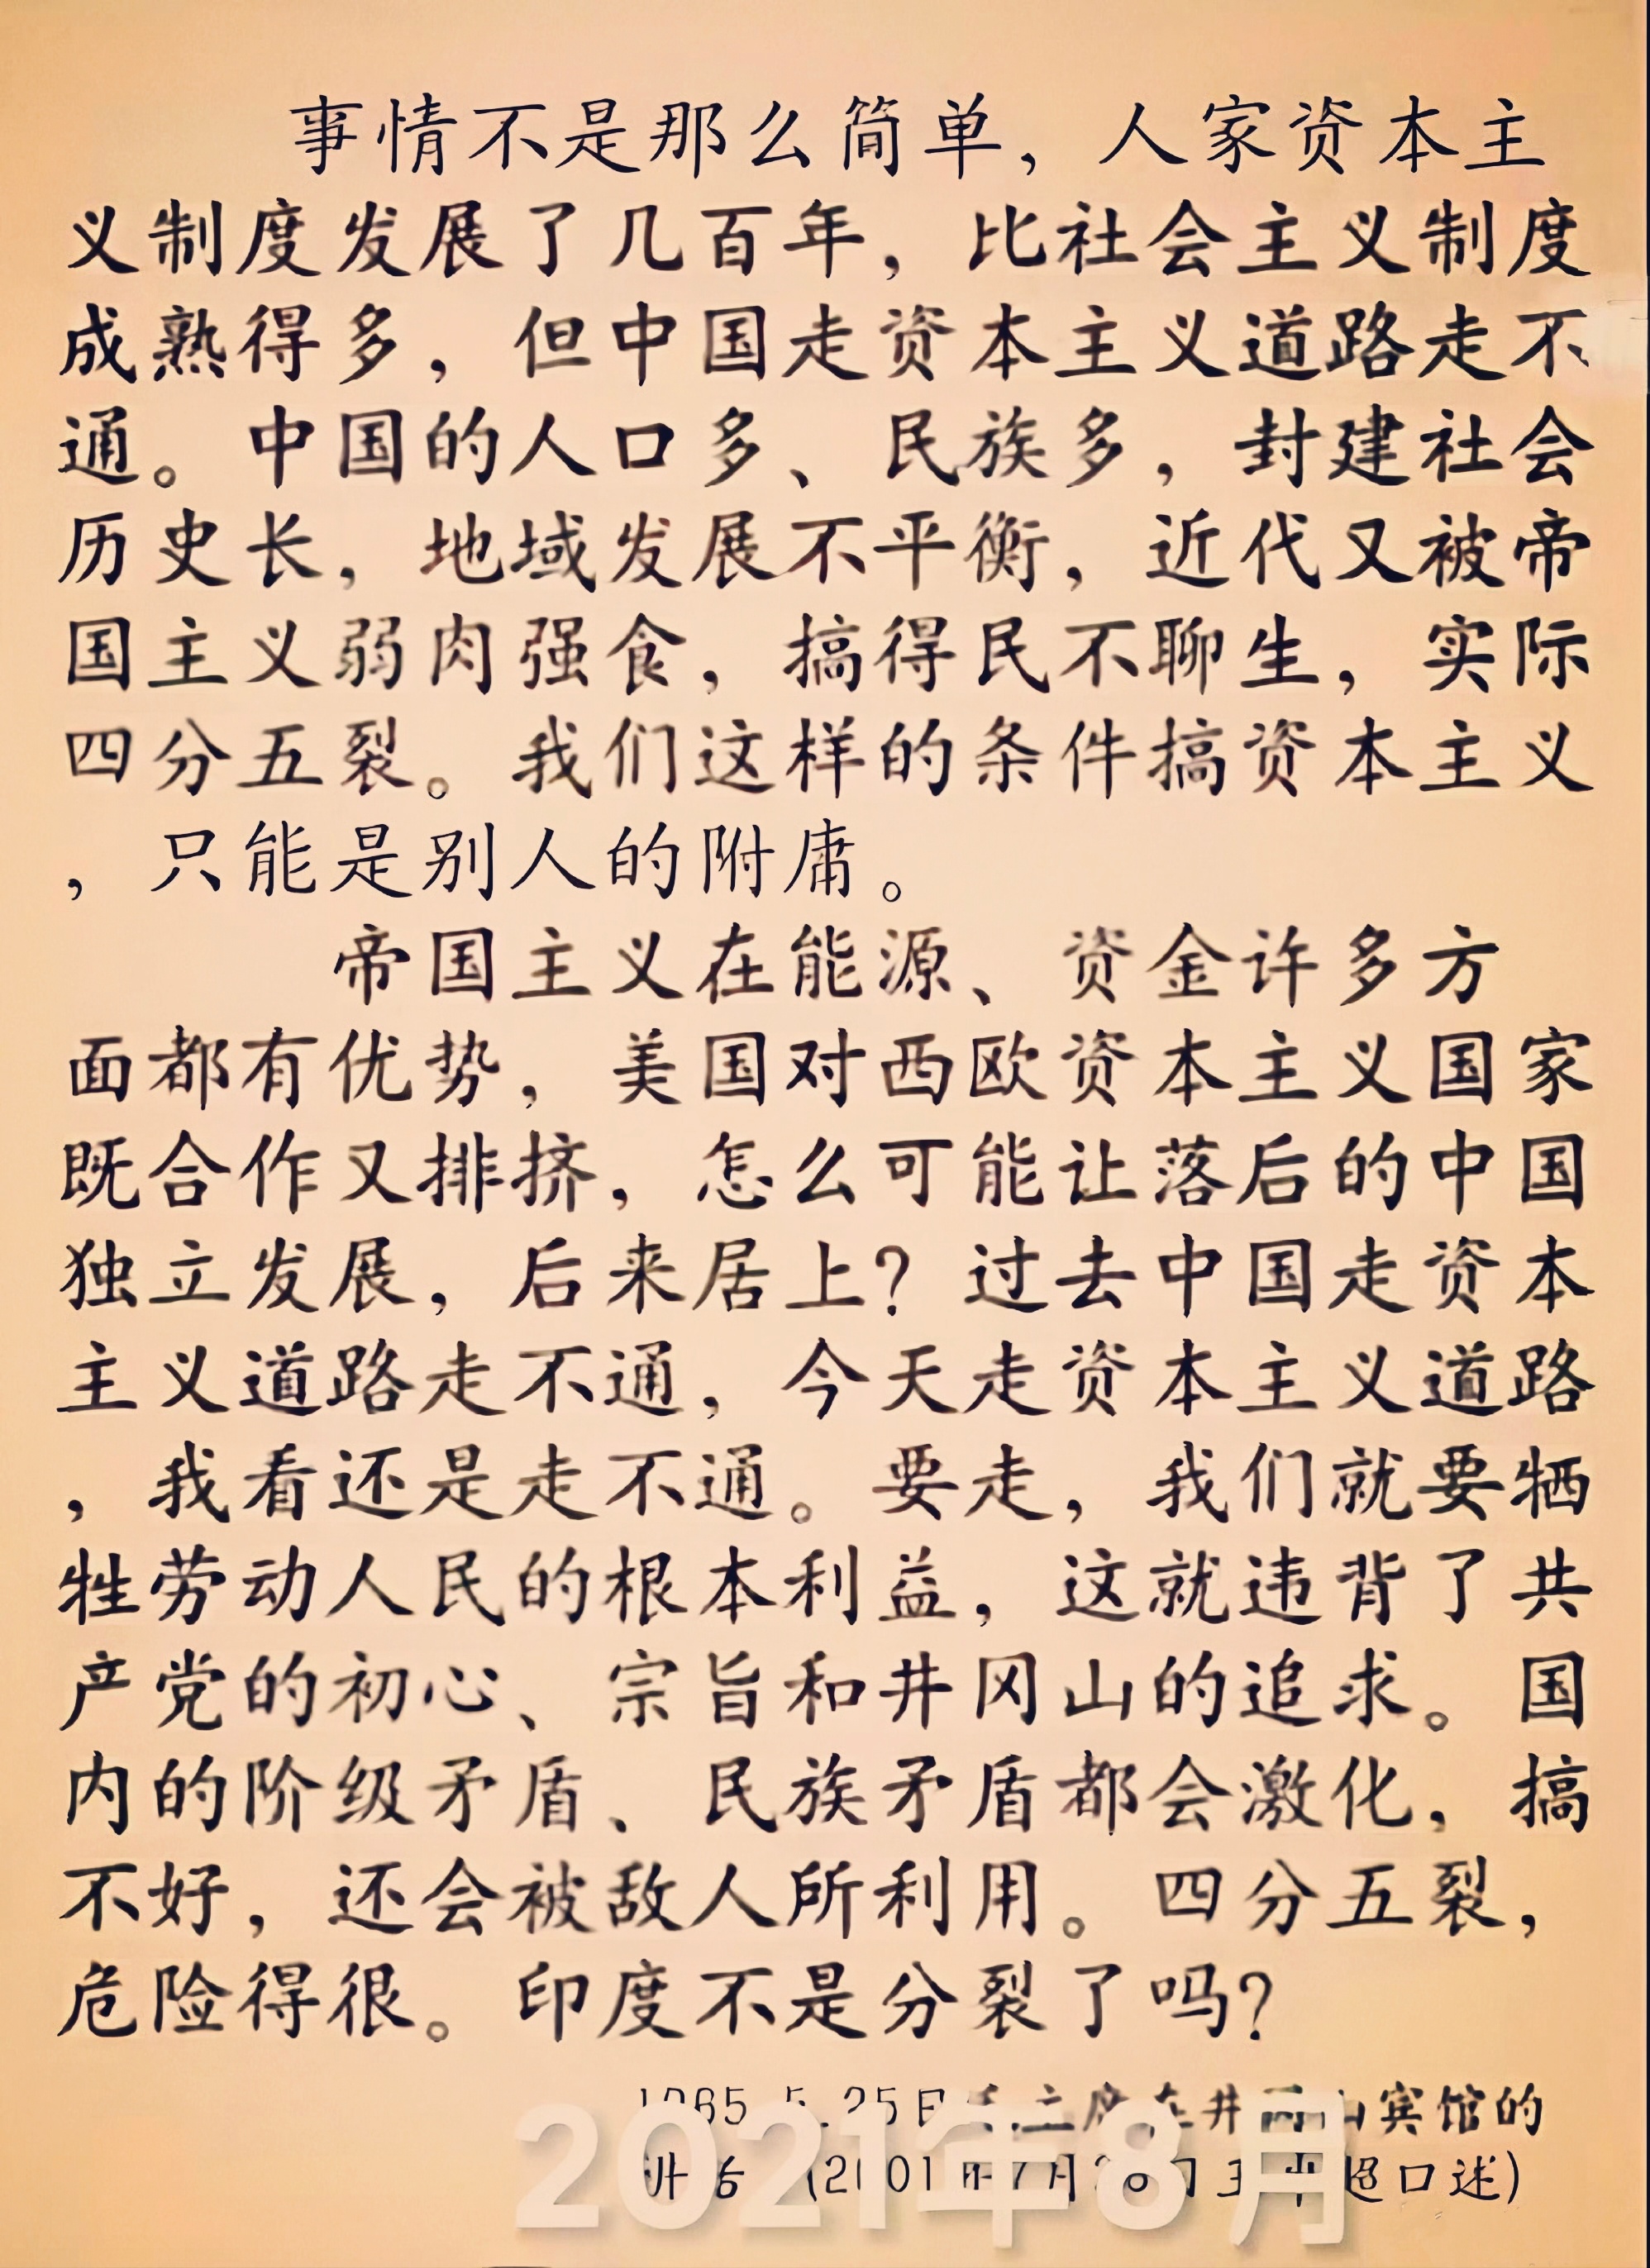 事情不是那么简单，人家资本主
义制度发展了几百年，比社会主义制度
成熟得多，但中国走资本主义道路走不
通。中国的人口多、民族多，封建社会
历史长，地域发展不平衡，近代又被帝
国主义弱肉强食，搞得民不聊生，实际
四分五裂。我们这样的条件搞资本主义
，只能是别人的附庸。
帝国主义在能源、资金许多方
面都有优势，美国对西欧资本主义国家
既合作又排挤，怎么可能让落后的中国
独立发展，后来居上？过去中国走资本
主义道路走不通，今天走资本主义道路
，我看还是走不通。要走，我们就要牺
牲劳动人民的根本利益，这就违背了共
产党的初心、宗旨和井冈山的追求。国
内的阶级矛盾、民族矛盾都会激化，搞
不好，还会被敌人所利用。四分五裂，
危险得很。印度不是分裂了吗？
1965.5.25日 主席在井冈山宾馆的
口述)
2021年8月